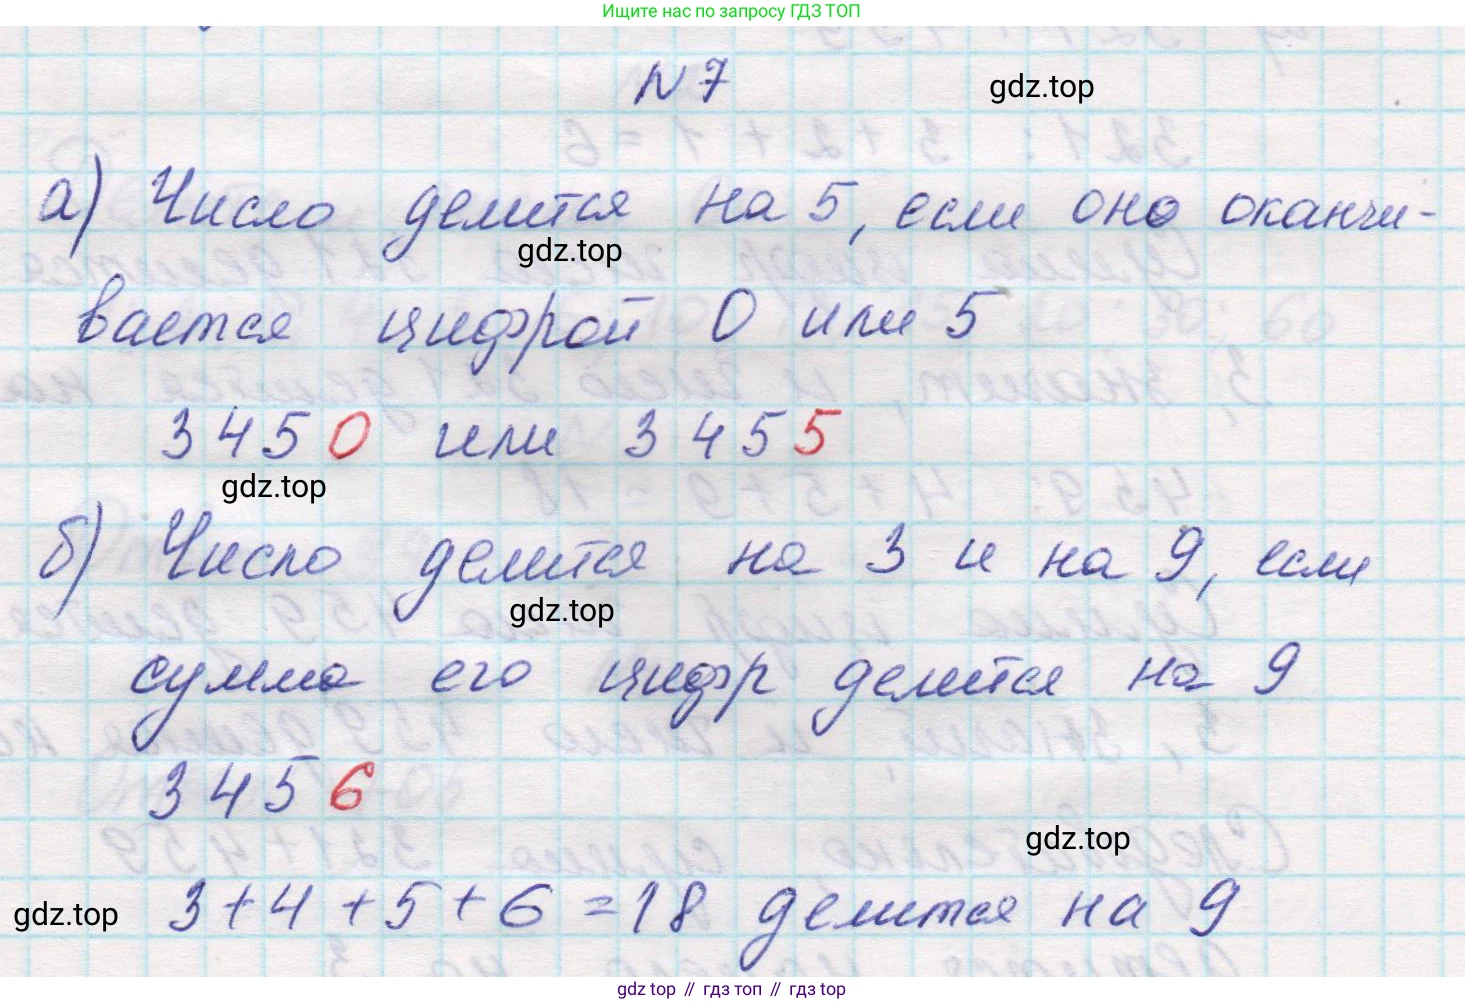 Ищите нас по запросу ГДЗ ТОП
N 7
gdz.top
а) Число делится на 5, если оно оканчи-
gdz.top
вается цифрой 0 или 5
3450 или 3455
gdz.top
б) Число делится на 3 и на 9, если
gdz.top
сумма его цифр делится на 9
3456
gdz.top
gdz.top
3+4+5+6=18 делится на 9
gdz top // гдз топ // gdz top